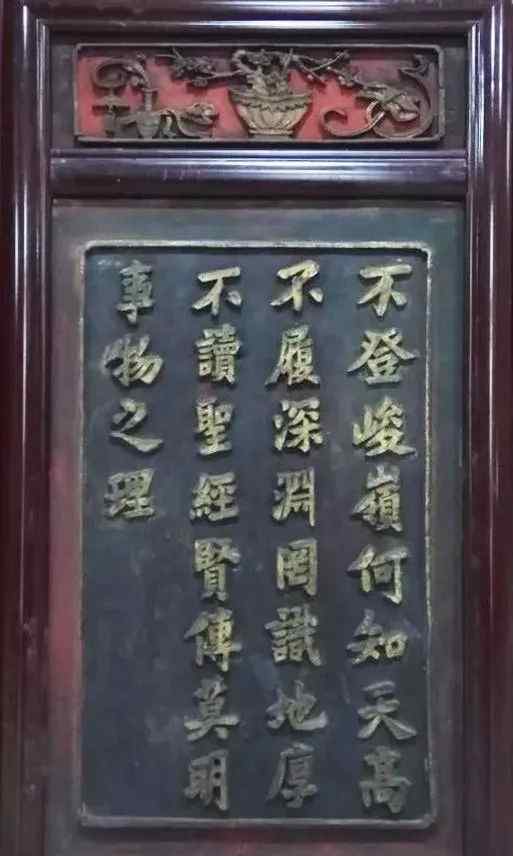 不登峻嶺何知天高
不履深淵罔識地厚
不讀聖經賢傳莫明
事物之理